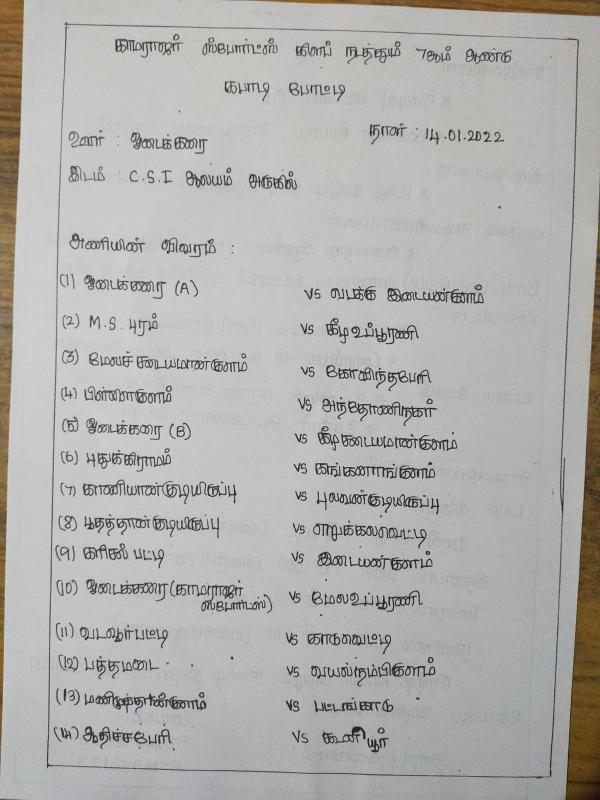 காமராஜர் ஸ்போர்ட்ஸ் கிளப் நடத்தும் 7ஆம் ஆண்டு
கபாடி போட்டி
நாள் : 14.01.2022
ஊர் : ஓடைக்கரை
இடம் : C.S.I ஆலயம் அருகில்
அணியின் விவரம் :
(1) ஓடைக்கரை (A) vs வடக்கு இடையன்குளம்
(2) M.S. புரம் vs கீழ உப்பூரணி
(3) மேலச் சடையமான்குளம் vs கோவிந்தபேரி
(4) பிள்ளைகுளம் vs அந்தோணிநகர்
(5) ஓடைக்கரை (B) vs கீழ சடையமான்குளம்
(6) புதுக்கிராமம் vs கங்கனாங்குளம்
(7) காணியாண்குடியிருப்பு vs புலவன்குடியிருப்பு
(8) பூதத்தான்குடியிருப்பு vs சாலுக்கலவெட்டி
(9) கரிசல் பட்டி vs இடையன்குளம்
(10) ஓடைக்கரை (காமராஜர் ஸ்போர்ட்ஸ்) vs மேல உப்பூரணி
(11) வடவூர்பட்டி vs காடுவெட்டி
(12) பத்தமடை vs வயல்நம்பிகுளம்
(13) மணிமுத்தான்குளம் vs பட்டங்காடு
(14) ஆதிச்சபேரி vs கூனியூர்